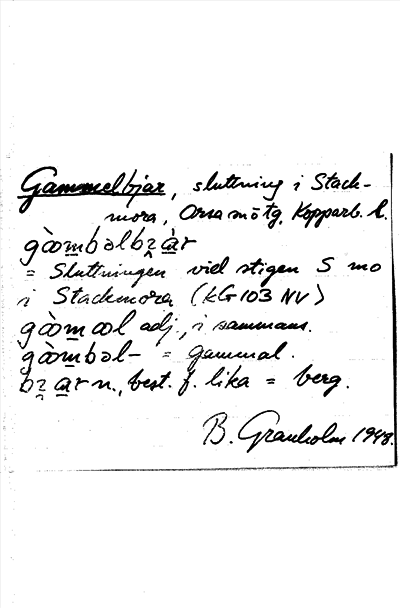 Gammelbjär, sluttning i Stack-
mora, Orsa m ötg, Kopparb. l.
gòo̲mbəlbẓà̲r
= Sluttningen vid stigen S mo
i Stackmora (kG 103 NV)
gòo̲m̲əl adj., i sammans.
gòo̲mbəl- = gammal.
bẓa̲r n., best. f. lika = berg.
B. Granholm 1948.